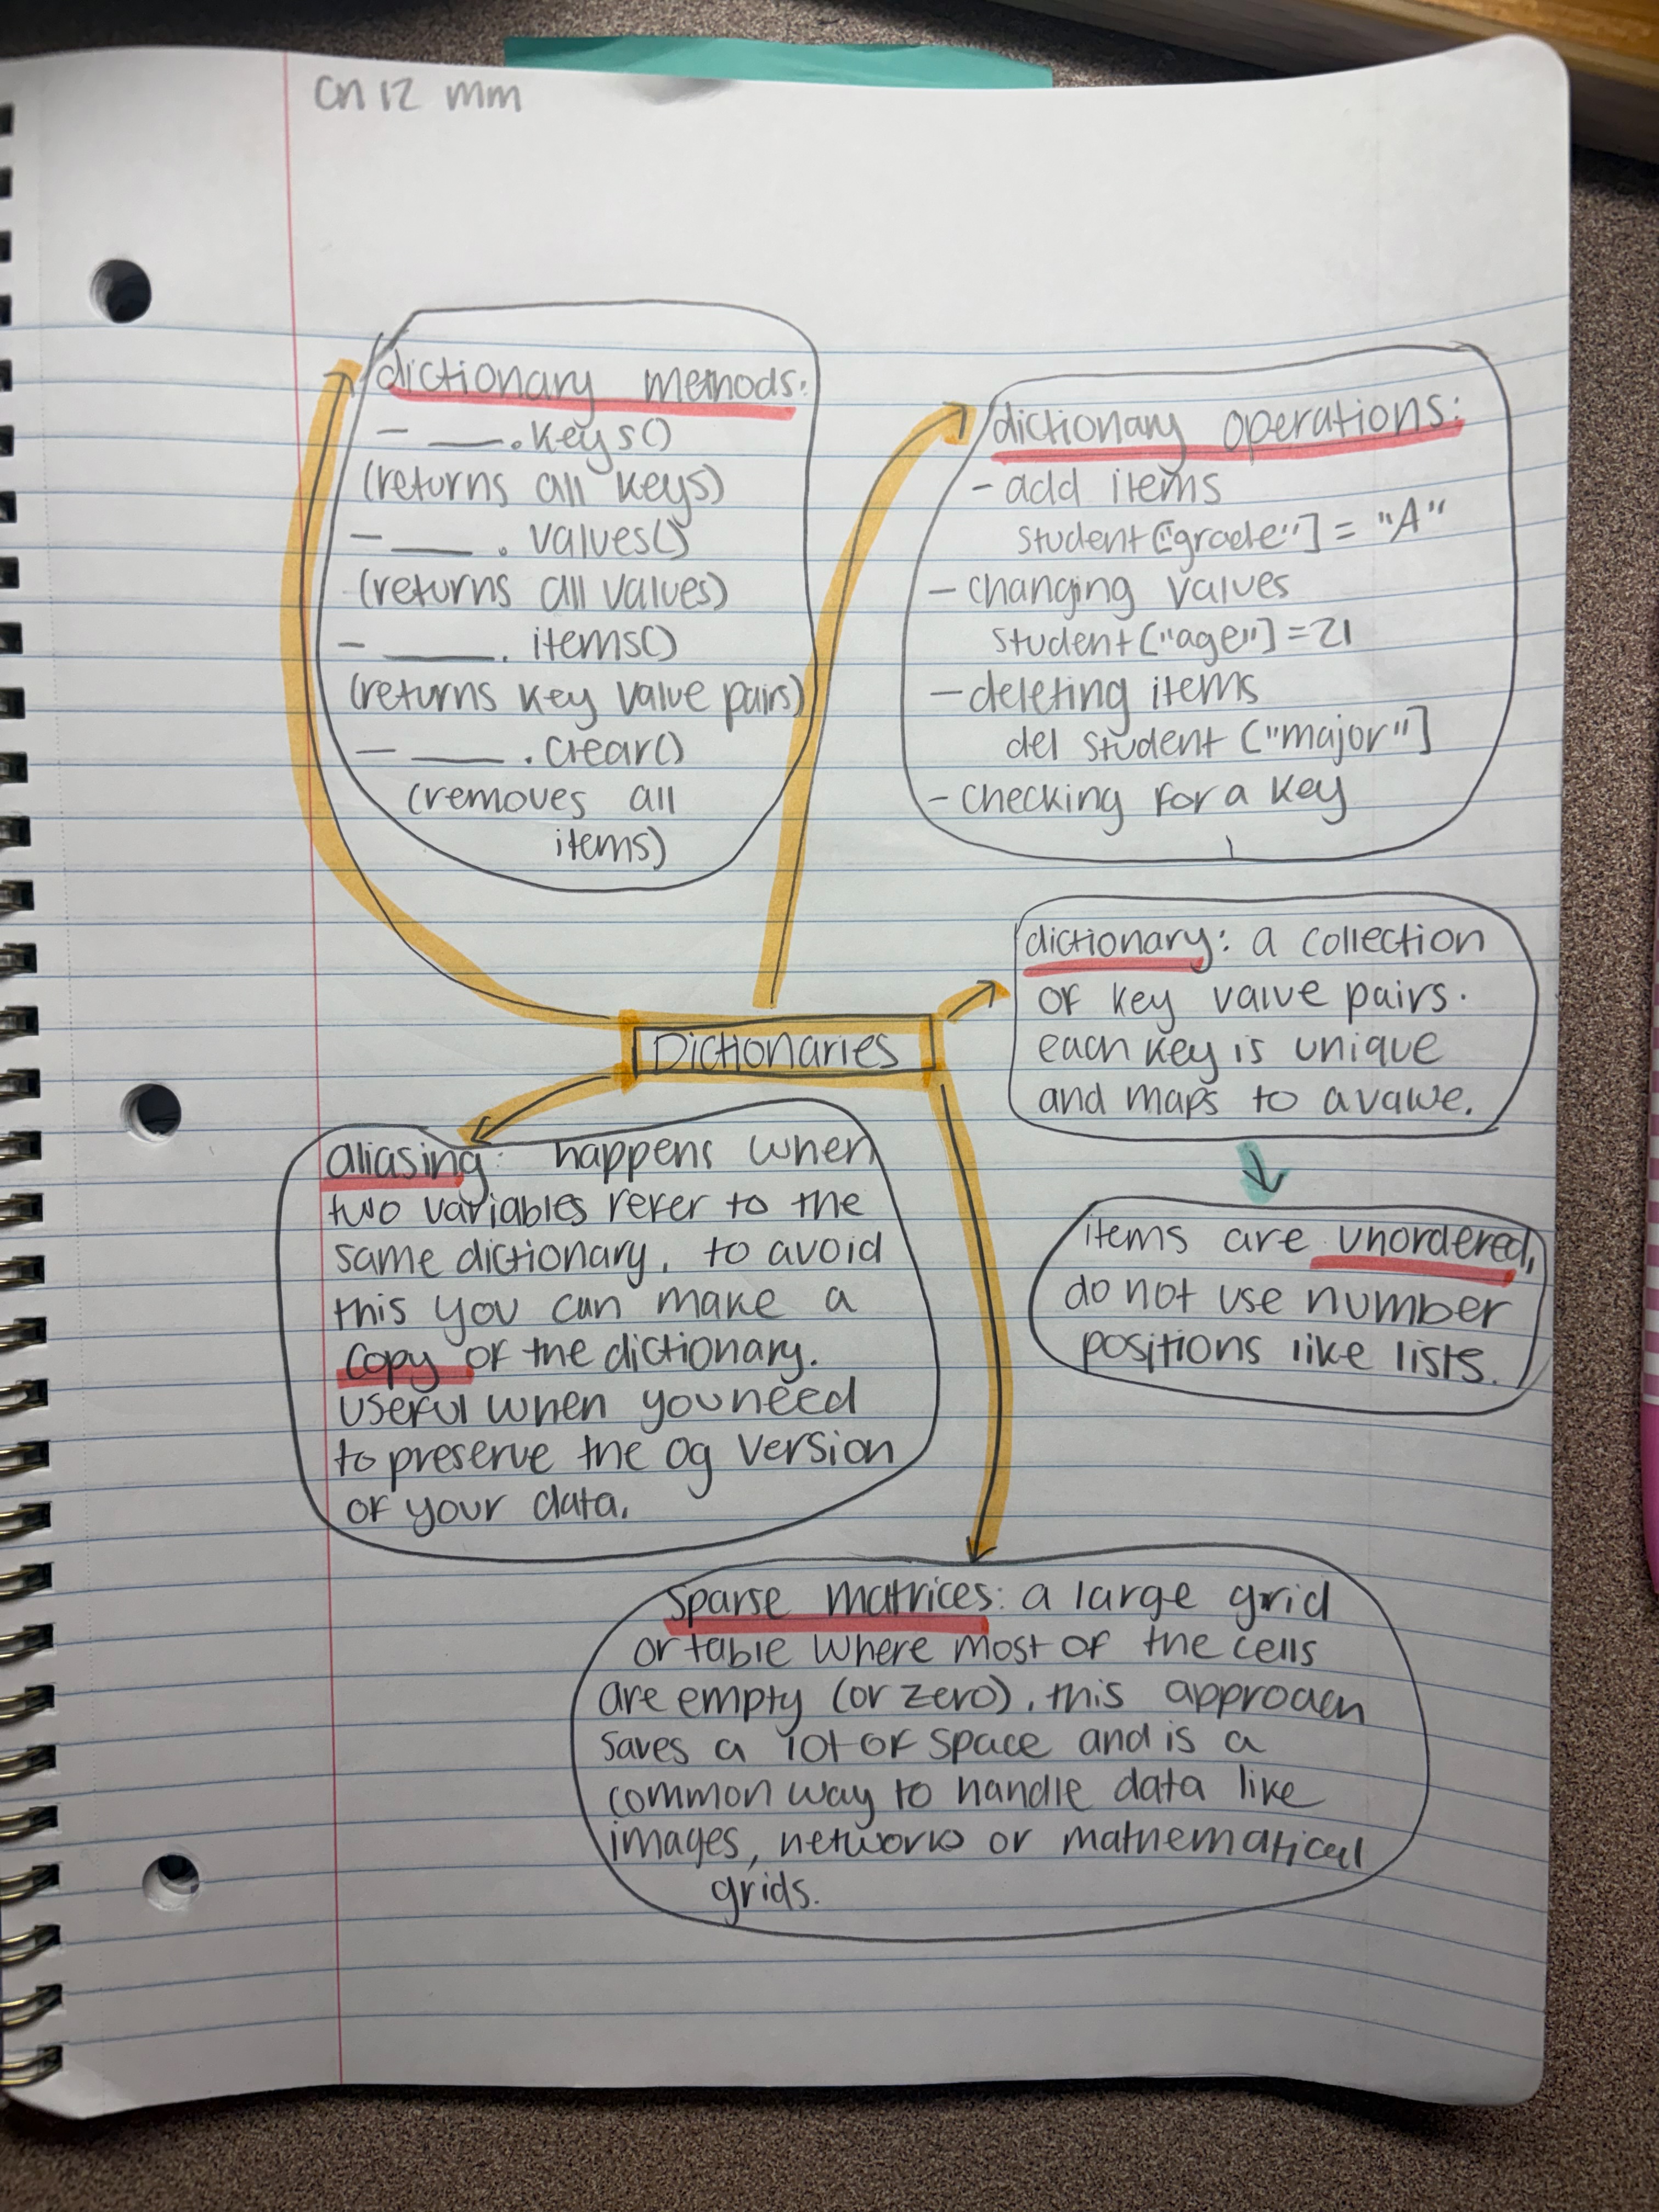 Cn 12 mm
dictionary methods:
- ___.keys()
(returns all keys)
- ___. values()
(returns all values)
- ___. items()
(returns key value pairs)
- ___.clear()
(removes all
items)
dictionary operations:
- add items
student["grade"] = "A"
- changing values
student["age"] = 21
- deleting items
del student ["major"]
- checking for a key
Dictionaries
dictionary: a collection
of key value pairs.
each key is unique
and maps to a value.
items are unordered,
do not use number
positions like lists.
aliasing: happens when
two variables refer to the
same dictionary. to avoid
this you can make a
copy of the dictionary.
useful when you need
to preserve the og version
of your data.
Sparse matrices: a large grid
or table where most of the cells
are empty (or zero). this approach
saves a lot of space and is a
common way to handle data like
images, networks or mathematical
grids.